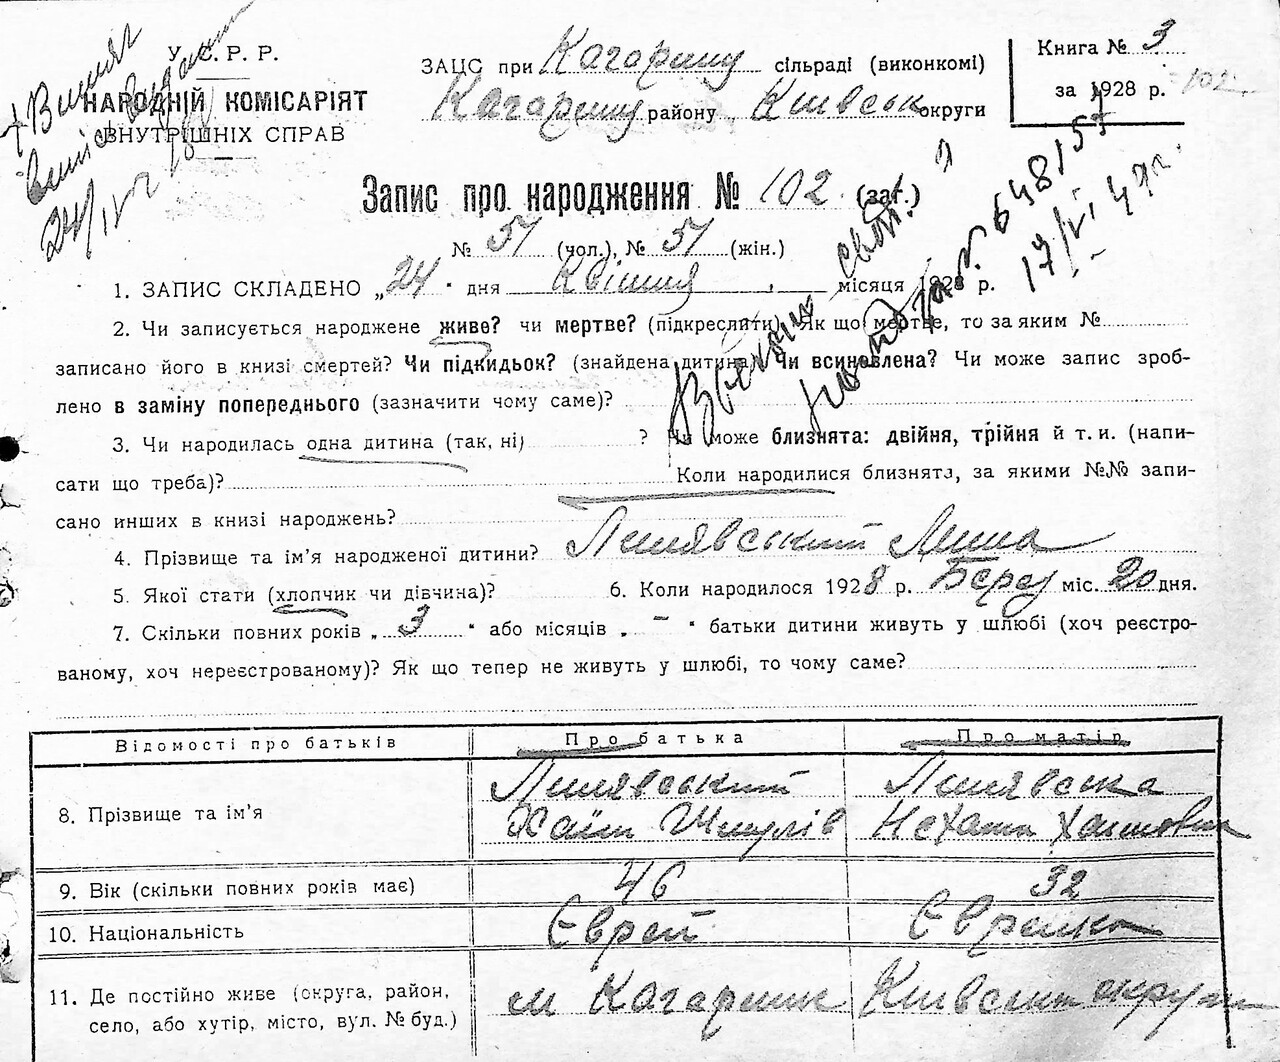 У.С.Р.Р.
НАРОДНІЙ КОМІСАРІЯТ
ВНУТРІШНІХ СПРАВ
24/IV
ЗАЦС при Кагарлиц. сільраді (виконкомі)
Кагарлиц. району Київськ округи
Книга № 3
за 1928 р.
102
Запис про народження № 102 (заг.)
№ 51 (чол.), № 51 (жін.)
648157
17/VI 49г.
1. ЗАПИС СКЛАДЕНО „24" дня Квітня місяця 1928 р.
2. Чи записується народжене живе? чи мертве? (підкреслити) Як що мертве, то за яким №
записано його в книзі смертей? Чи підкидьок? (знайдена дитина) Чи всиновлена? Чи може запис зроб-
лено в заміну попереднього (зазначити чому саме)?
3. Чи народилась одна дитина (так, ні) ? Чи може близнята: двійня, трійня й т. и. (напи-
сати що треба)? Коли народилися близнята, за якими №№ запи-
сано инших в книзі народжень?
4. Прізвище та ім'я народженої дитини?
5. Якої стати (хлопчик чи дівчина)? 6. Коли народилося 1928 р. Берез міс. 20 дня.
7. Скільки повних років „ 3 " або місяців „ – " батьки дитини живуть у шлюбі (хоч реєстро-
ваному, хоч нереєстрованому)? Як що тепер не живуть у шлюбі, то чому саме?
Відомості про батьків Про батька Про матір
8. Прізвище та ім'я
Хаїм Шмулів
9. Вік (скільки повних років має) 46 32
10. Національність Єврей Єврейка
11. Де постійно живе (округа, район, м Кагарлик Київської округи
село, або хутір, місто, вул. № буд.)